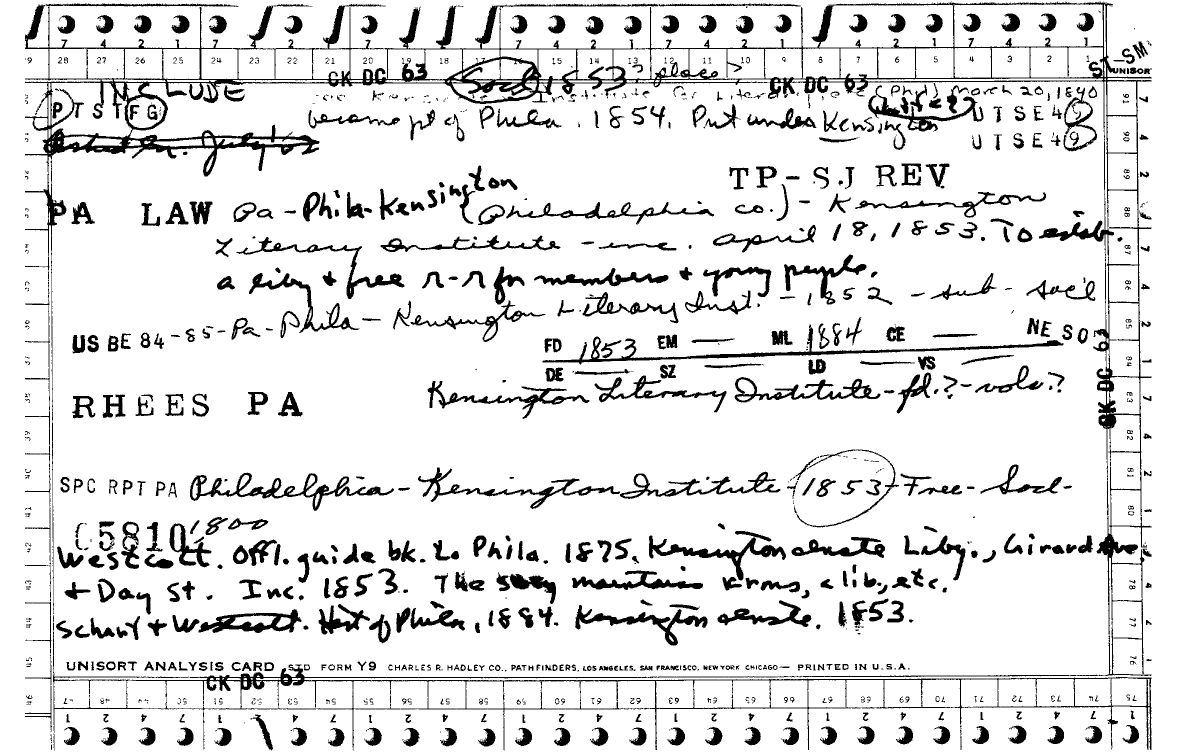 7 4 2 1 7 4 2 1 7 4 2 1 7 4 2 1 7 4 2 1 7 4 2 1 7 4 2 1
28 27 26 25 24 23 22 21 20 19 18 17 16 15 14 13 12 11 10 9 8 7 6 5 4 3 2 1
ST-SM
UNISORT
CK DC 63 Socl 1853? place? CK DC 63
INCLUDE
Kensington Institute (Phil) March 20, 1840
PTSTFG became pt of Phila. 1854. Put under Kensington UTSE49
July '62 UTSE49
TP-SJ REV
PA LAW Pa-Phila-Kensington (Philadelphia co.) - Kensington
Literary Institute - inc. April 18, 1853. To estab.
a liby & free r-r for members & young people.
US BE 84-85-Pa-Phila- Kensington Literary Inst. - 1852 - sub - soc'l
FD 1853 EM — ML 1884 CE — NE SO 63
DE — SZ — LD — VS —
RHEES PA Kensington Literary Institute-fd.?-vols.?
CK DC
SPC RPT PA Philadelphia- Kensington Institute-1853-Free-Socl-
05810 1800
Westcott. Offl. guide bk. to Phila. 1875. Kensington Institute Liby., Girard Ave.
& Day St. Inc. 1853. The maintains r rms, a lib., etc.
Scharf & Westcott. Hist of Phila, 1884. Kensington Institute. 1853.
UNISORT ANALYSIS CARD STD FORM Y9 CHARLES R. HADLEY CO., PATHFINDERS, LOS ANGELES, SAN FRANCISCO, NEW YORK CHICAGO — PRINTED IN U.S.A.
CK DC 63